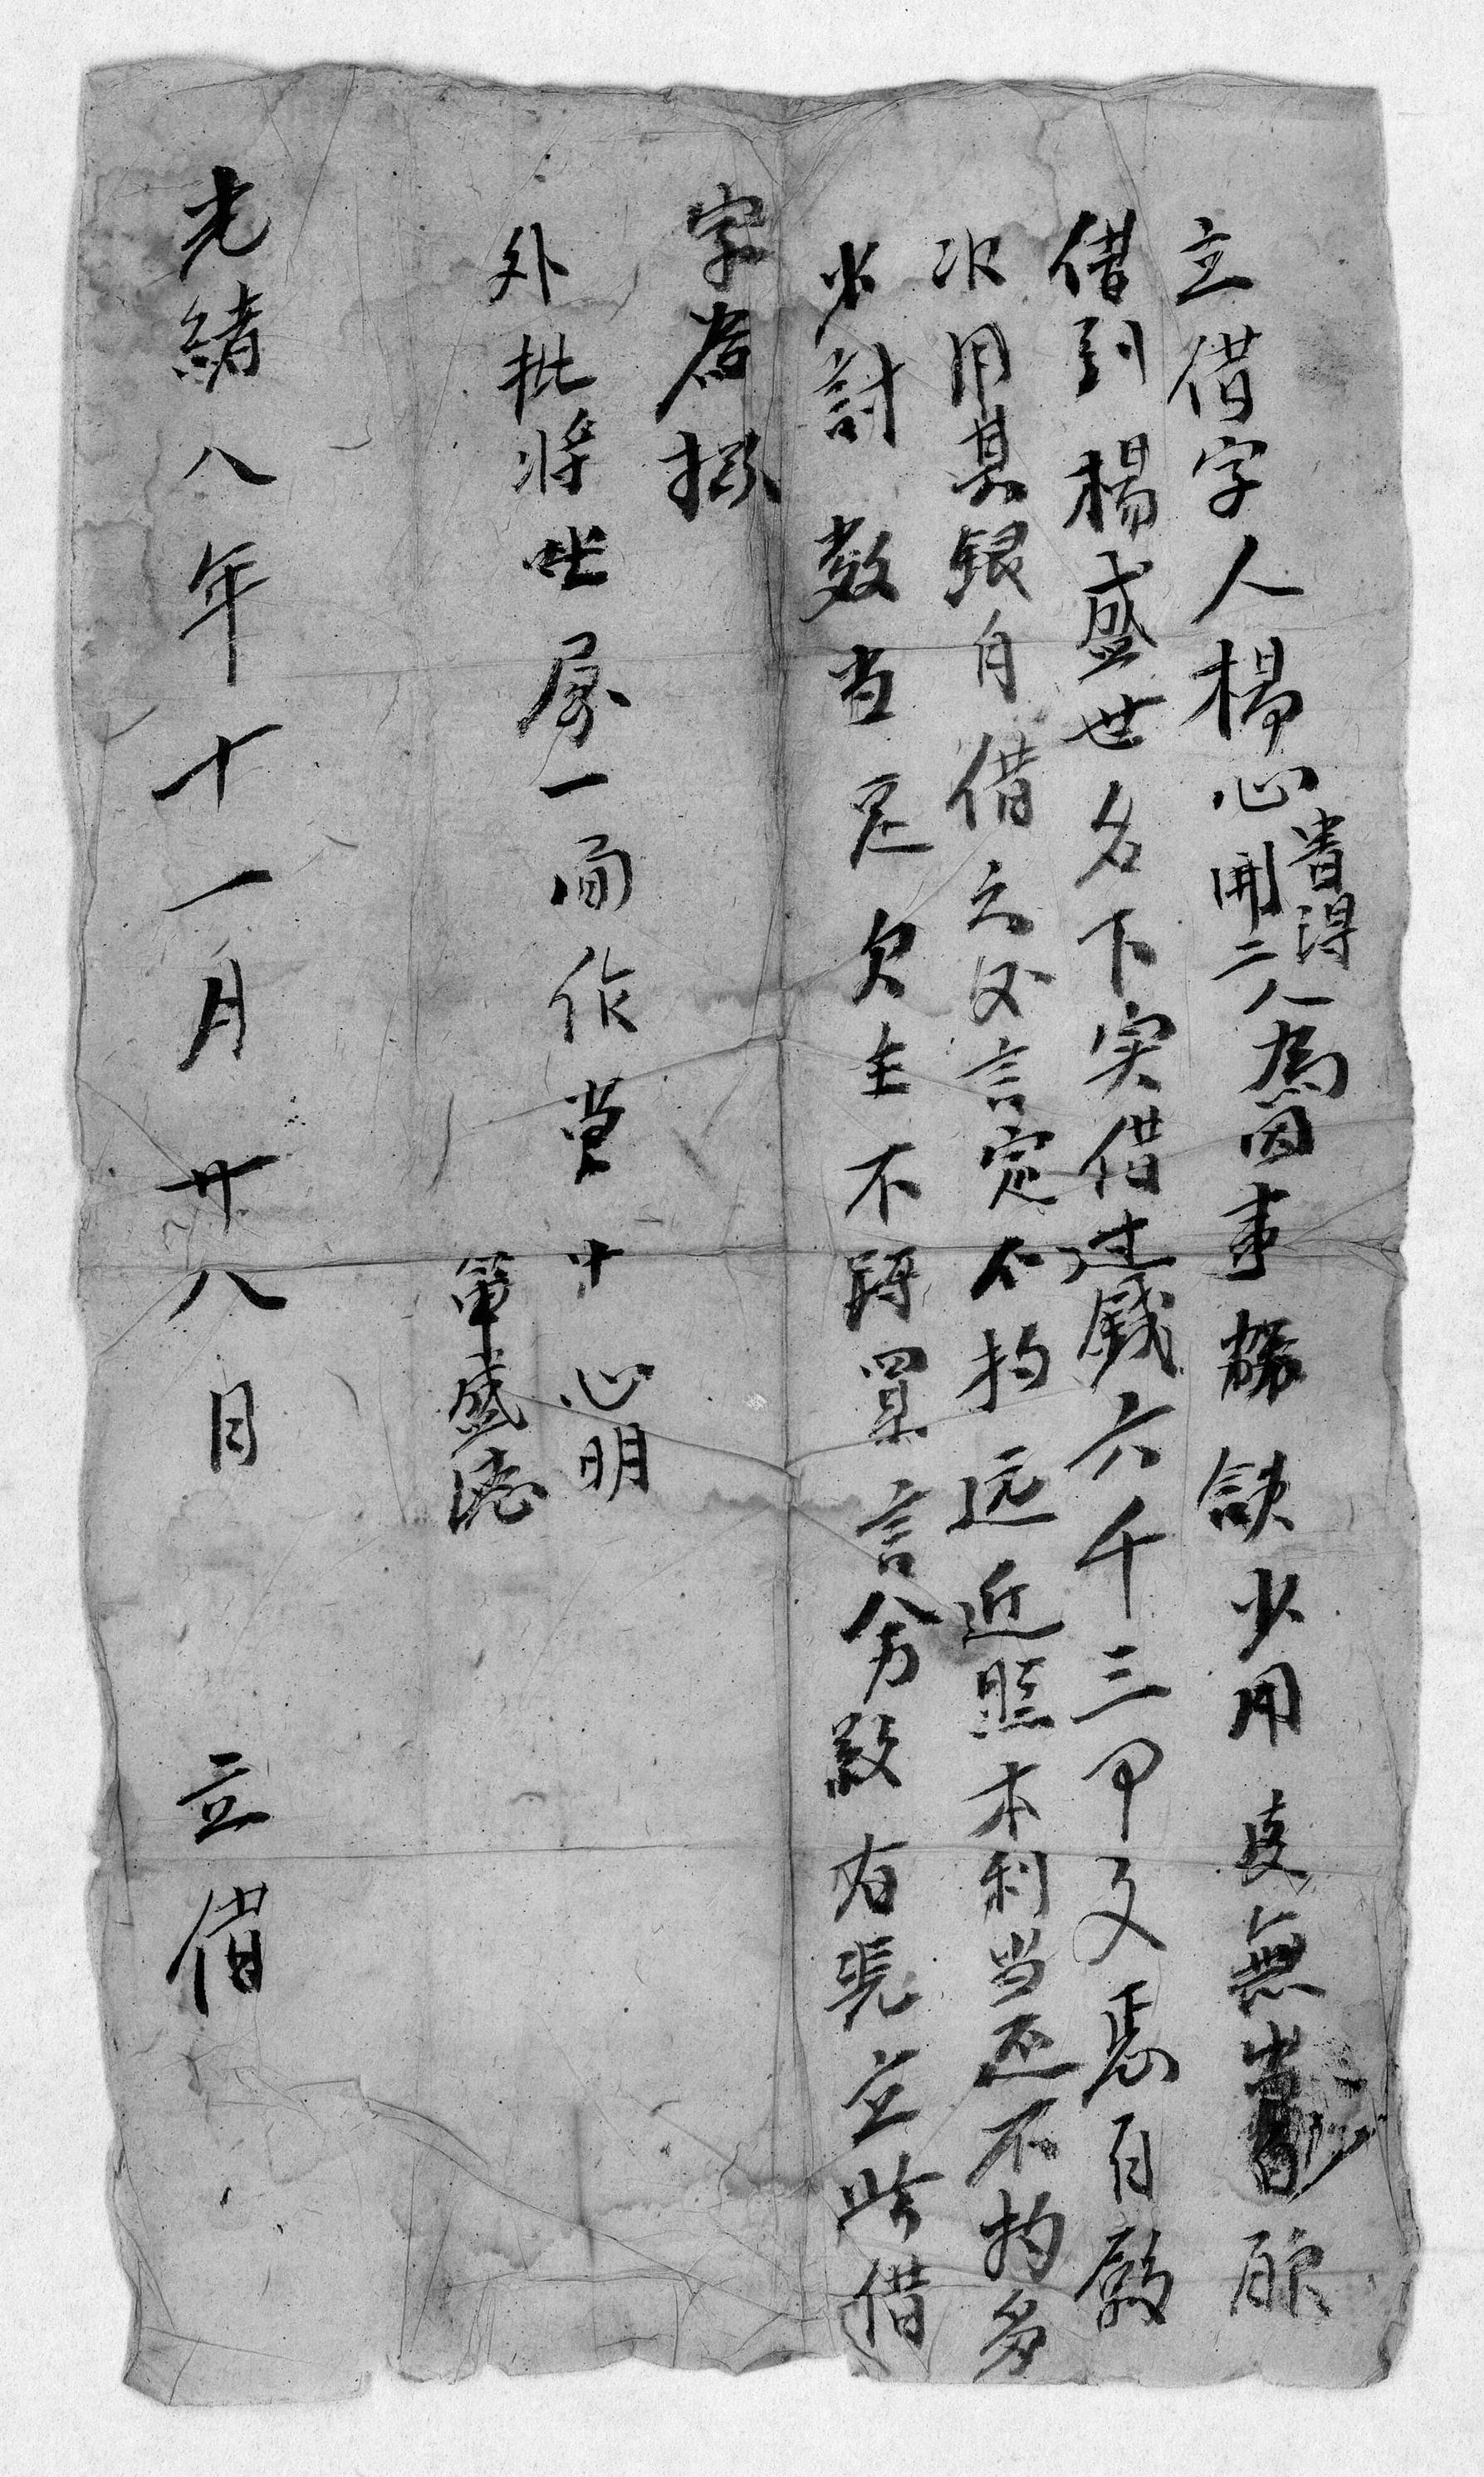 立借字人楊心開貴得二人為因事務缺少用度無出自願
借到楊盛世名下实借过錢六千三百文焉自願
次用其銀自借之后言定不拘远近照本利当还不拘多
少討数当是欠主不得異言今欲有凭立此借
字為據
外批將坐屋一间作當中心明
筆盛德
光緒八年十一月廿八日立借